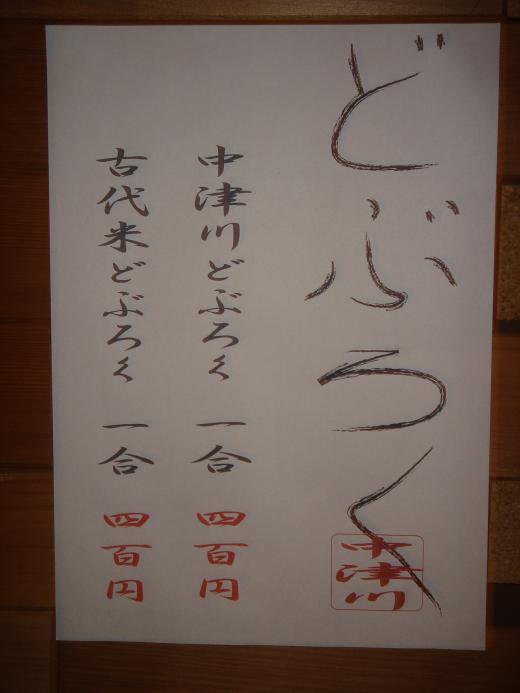 どぶろく
中津川
中津川どぶろく 一合 四百円
古代米どぶろく 一合 四百円